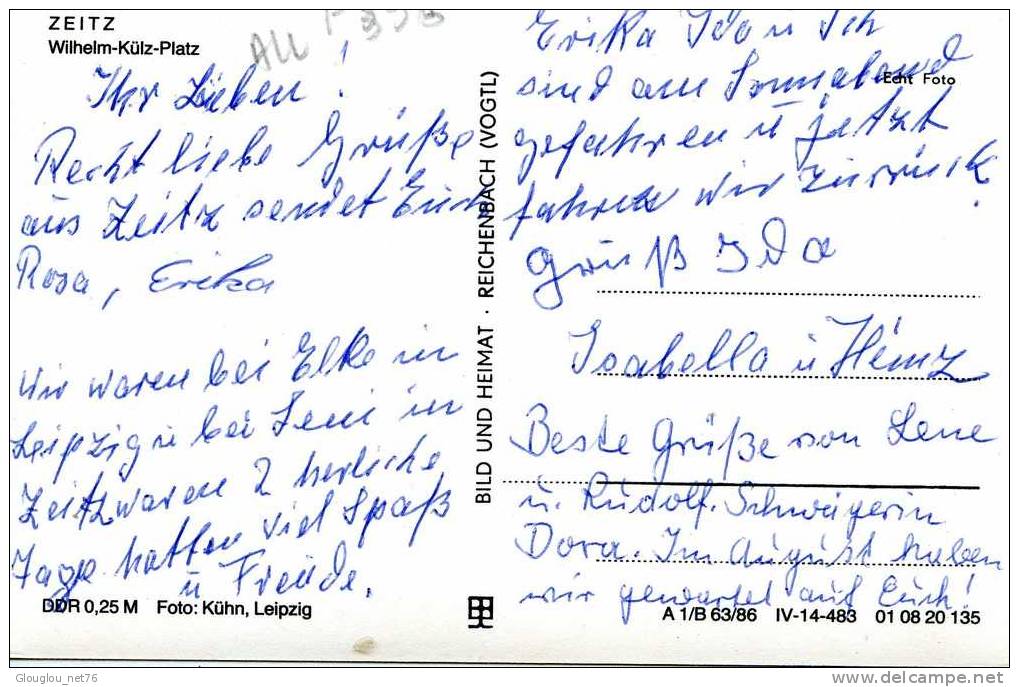 ZEITZ
Wilhelm-Külz-Platz
ALL
Ihr Lieben!
Recht liebe Grüße
aus Zeitz sendet Euch
Rosa, Erika
Wir waren bei Elke in
Leipzig u bei Leni in
Zeitz waren 2 herliche
Tage hatten viel Spaß
u Freude.
DDR 0,25 M Foto: Kühn, Leipzig
BILD UND HEIMAT · REICHENBACH (VOGTL)
Erika Ida u Ich
sind am Sonnabend
Echt Foto
gefahren u jetzt
fahren wir zurück.
Gruß Ida
Isabella u Heinz
Beste Grüße von Lene
u. Rudolf. Schwägerin
Dora. Im August haben
wir gewartet auf Euch!
A 1/B 63/86 IV-14-483 01 08 20 135
Glouglou_net76
delcampe.net